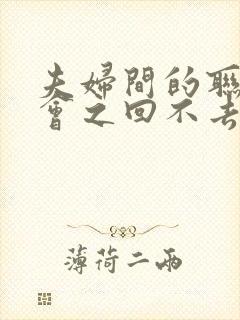 夫婦間的聯
會之回不去
薄荷二兩